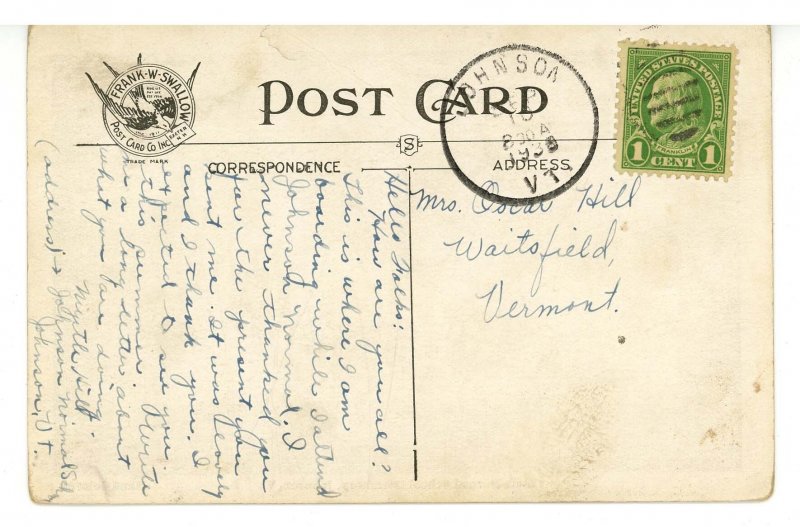 FRANK·W·SWALLOW
POST CARD CO INC.
EXETER N.H.
TRADE MARK
POST CARD
S
CORRESPONDENCE
ADDRESS
JOHNSON
830A
1938
VT.
UNITED STATES POSTAGE
FRANKLIN
1 CENT 1
Mrs. Oscar Hill
Waitsfield,
Vermont.
Hello Folks:
How are you all?
This is where I am
boarding while I attend
Johnson Normal. I
never thanked you
for the present you
sent me. It was lovely
and I thank you. I
expected to see you
this summer. Write
me a long letter about
what you are doing.
Myrtle Hill
(address) → Johnson Normal School
Johnson, Vt.